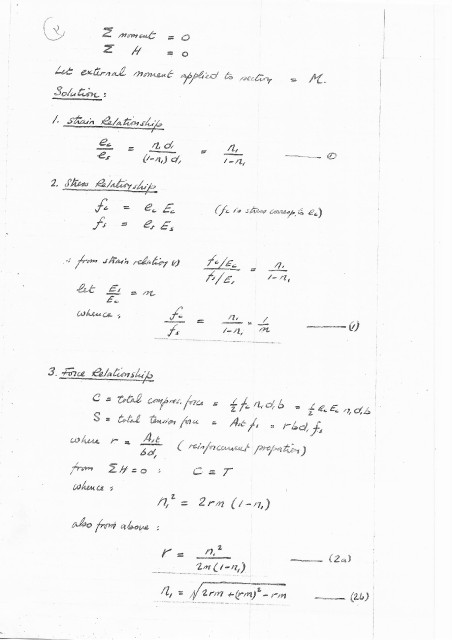 2
Σ moment = 0
Σ H = 0
Let external moment applied to section = M.
Solution:
1. Strain Relationship
e_c/e_s = n₁d₁/(1-n₁)d₁ = n₁/1-n₁
2. Stress Relationship
f_c = e_c E_c (f_c is stress corresp. to e_c)
f_s = e_s E_s
∴ from strain relation (1) f_c/E_c / f_s/E_s = n₁/1-n₁
Let E_s/E_c = m
whence: f_c/f_s = n₁/1-n₁ · 1/m (1)
3. Force Relationship
C = total compres. force = ½ f_c n₁d₁b = ½ e_c E_c n₁d₁b
S = total tension force = Ast f_s = rbd₁ f_s
where r = Ast/bd₁ (reinforcement proportion)
from ΣH=0: C = T
whence:
n₁² = 2rm (1-n₁)
also from above:
r = n₁²/2m(1-n₁) (2a)
n₁ = √2rm+(rm)² - rm (2b)